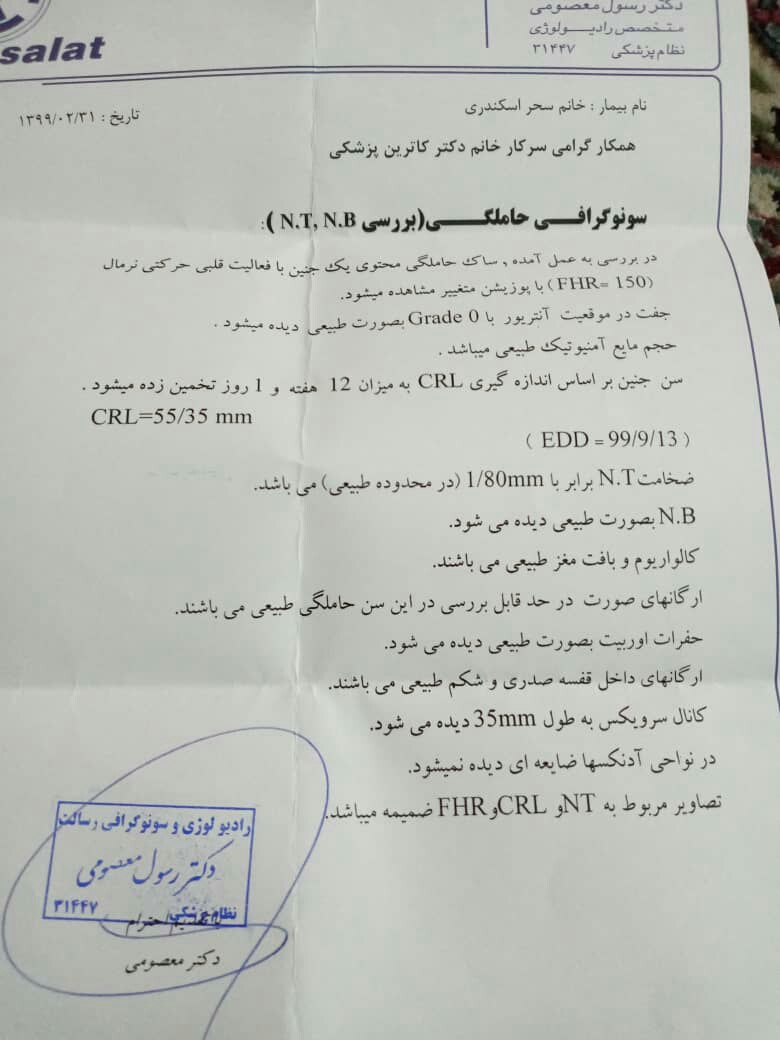 salat
دکتر رسول معصومی
متخصص رادیـولوژی
نظام پزشکی ۳۱۴۴۷
نام بیمار : خانم سحر اسکندری
تاریخ : ۱۳۹۹/۰۲/۳۱
همکار گرامی سرکار خانم دکتر کاترین پزشکی
سونوگرافی حاملگی(بررسی N.T, N.B ):
در بررسی به عمل آمده , ساک حاملگی محتوی یک جنین با فعالیت قلبی حرکتی نرمال
(FHR= 150) با پوزیشن متغییر مشاهده میشود.
جفت در موقعیت آنتریور با Grade 0 بصورت طبیعی دیده میشود .
حجم مایع آمنیوتیک طبیعی میباشد .
سن جنین بر اساس اندازه گیری CRL به میزان 12 هفته و 1 روز تخمین زده میشود .
CRL=55/35 mm
( EDD = 99/9/13 )
ضخامت N.T برابر با 1/80mm (در محدوده طبیعی) می باشد.
N.B بصورت طبیعی دیده می شود.
کالواریوم و بافت مغز طبیعی می باشند.
ارگانهای صورت در حد قابل بررسی در این سن حاملگی طبیعی می باشند.
حفرات اوربیت بصورت طبیعی دیده می شود.
ارگانهای داخل قفسه صدری و شکم طبیعی می باشند.
کانال سرویکس به طول 35mm دیده می شود.
در نواحی آدنکسها ضایعه ای دیده نمیشود.
تصاویر مربوط به NT و CRL و FHR ضمیمه میباشد.
رادیو لوژی و سونوگرافی رسالت
دکتر رسول معصومی
نظام پزشکی ۳۱۴۴۷
با تقدیم احترام
دکتر معصومی